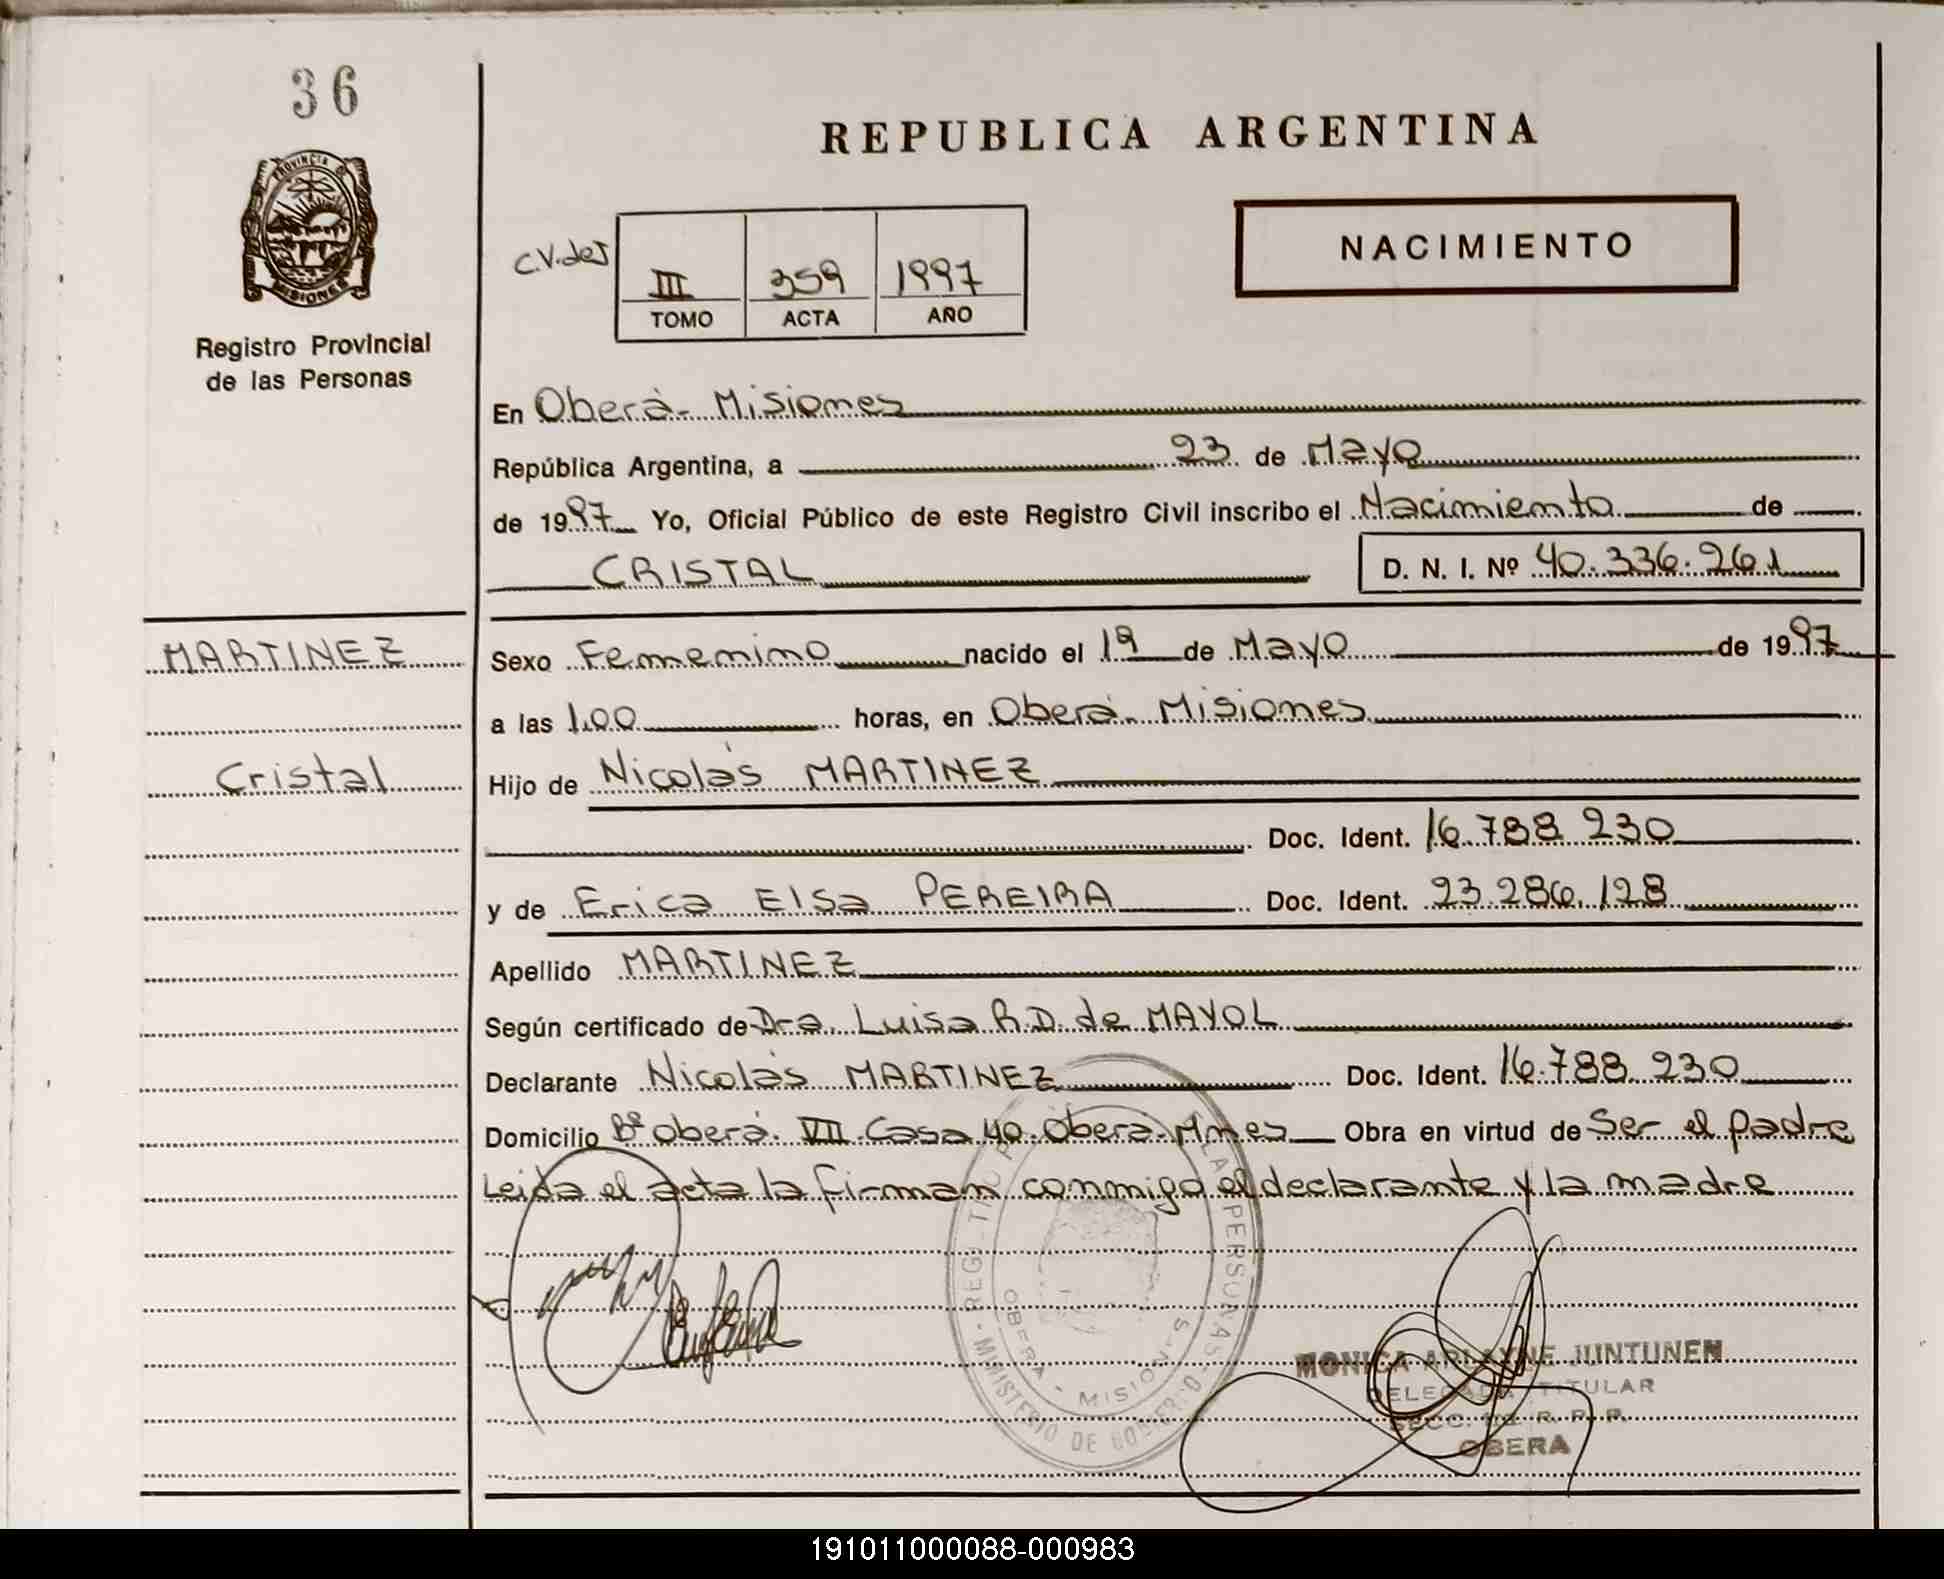 36
PROVINCIA DE
MISIONES
Registro Provincial
de las Personas
REPUBLICA ARGENTINA
NACIMIENTO
C.V.deJ
III 359 1997
TOMO ACTA AÑO
En Oberá- Misiones
República Argentina, a 23 de Mayo
de 1997 Yo, Oficial Público de este Registro Civil inscribo el Nacimiento de
CRISTAL D. N. I. Nº 40.336.261
MARTINEZ
Cristal
Sexo Femenino nacido el 19 de Mayo de 1997
a las 1.00 horas, en Oberá. Misiones
Hijo de Nicolás MARTINEZ
Doc. Ident. 16.788.230
y de Erica Elsa PEREIRA Doc. Ident. 23.286.128
Apellido MARTINEZ
Según certificado de Dra. Luisa R.D. de MAYOL
Declarante Nicolás MARTINEZ Doc. Ident. 16.788.230
Domicilio Bº Oberá. VII Casa 40. Oberá. Mnes Obra en virtud de Ser el padre
Leida el acta la firman conmigo el declarante y la madre
LAS PERSONAS
MINISTERIO DE GOBIERNO
OBERA - MISIONES
MONICA ARLAYNE JUNTUNEN
DELEGADA TITULAR
SECC. R. P. P.
OBERA
191011000088-000983